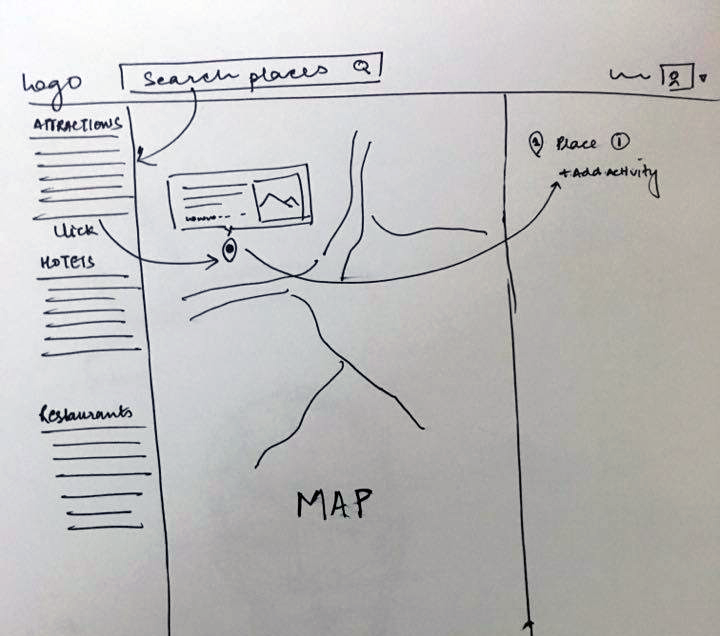 Logo
Search places
ATTRACTIONS
Click
HOTELS
Restaurants
MAP
Place 1
+ Add Activity